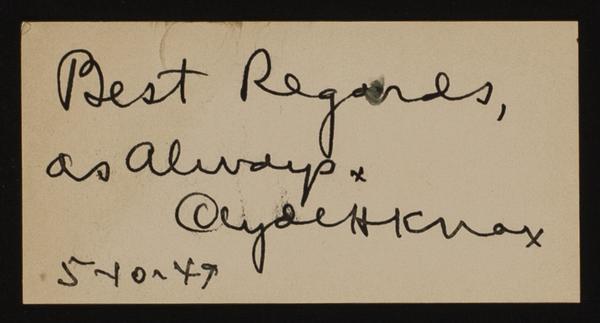 Best Regards,
as Always.
Clyde H Knox
5-10-47